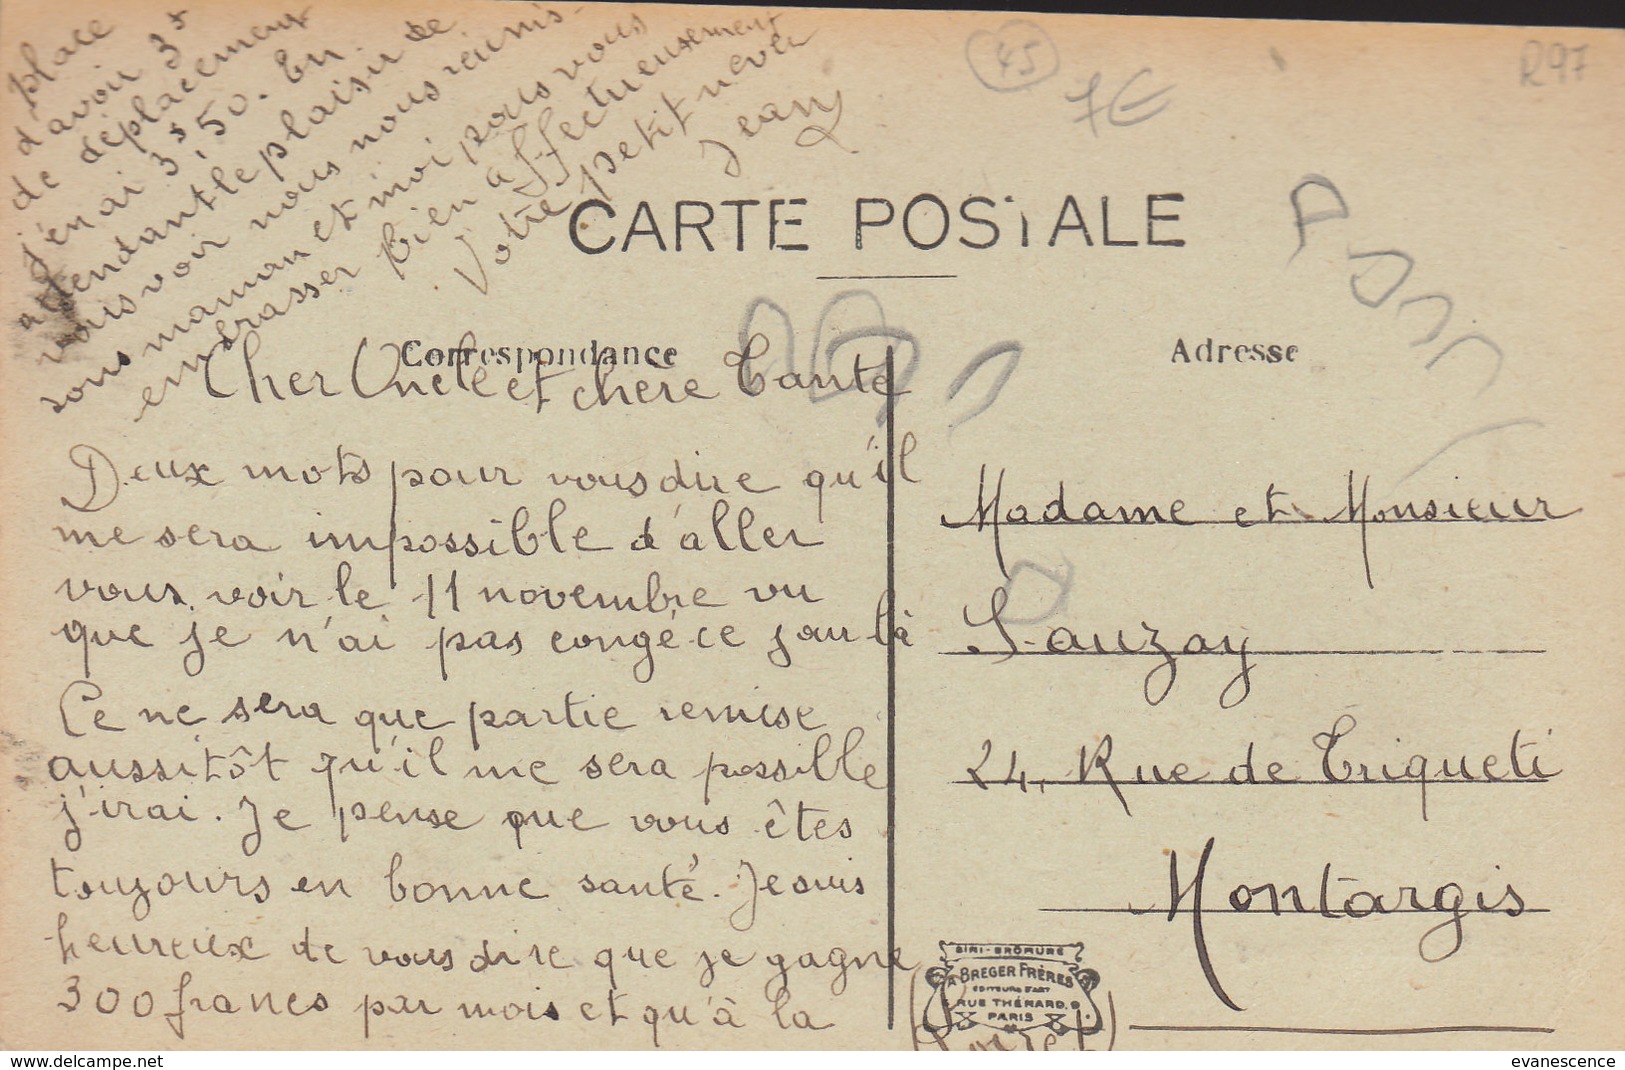 45
7€
R97
CARTE POSTALE
Correspondance
Adresse
Cher Oncle et chère Tante
Deux mots pour vous dire qu'il
me sera impossible d'aller
vous voir le 11 novembre vu
que je n'ai pas congé ce jour là
Ce ne sera que partie remise
aussitôt qu'il me sera possible
j'irai. Je pense que vous êtes
toujours en bonne santé. Je suis
heureux de vous dire que je gagne
300 francs par mois et qu'à la
place
d'avoir 3f
de déplacement
j'en ai 3f,50. En
attendant le plaisir de
vous voir nous nous réunis-
sons maman et moi pour vous
embrasser bien affectueusement
Votre petit neveu
Jean
Madame et Monsieur
Sauzay
24, Rue de Triqueti
Montargis
(Loiret)
SIMI-BROMURE
A. BREGER FRÈRES
EDITEURS D'ART
9 RUE THÉNARD. 9
PARIS
www.delcampe.net
evanescence